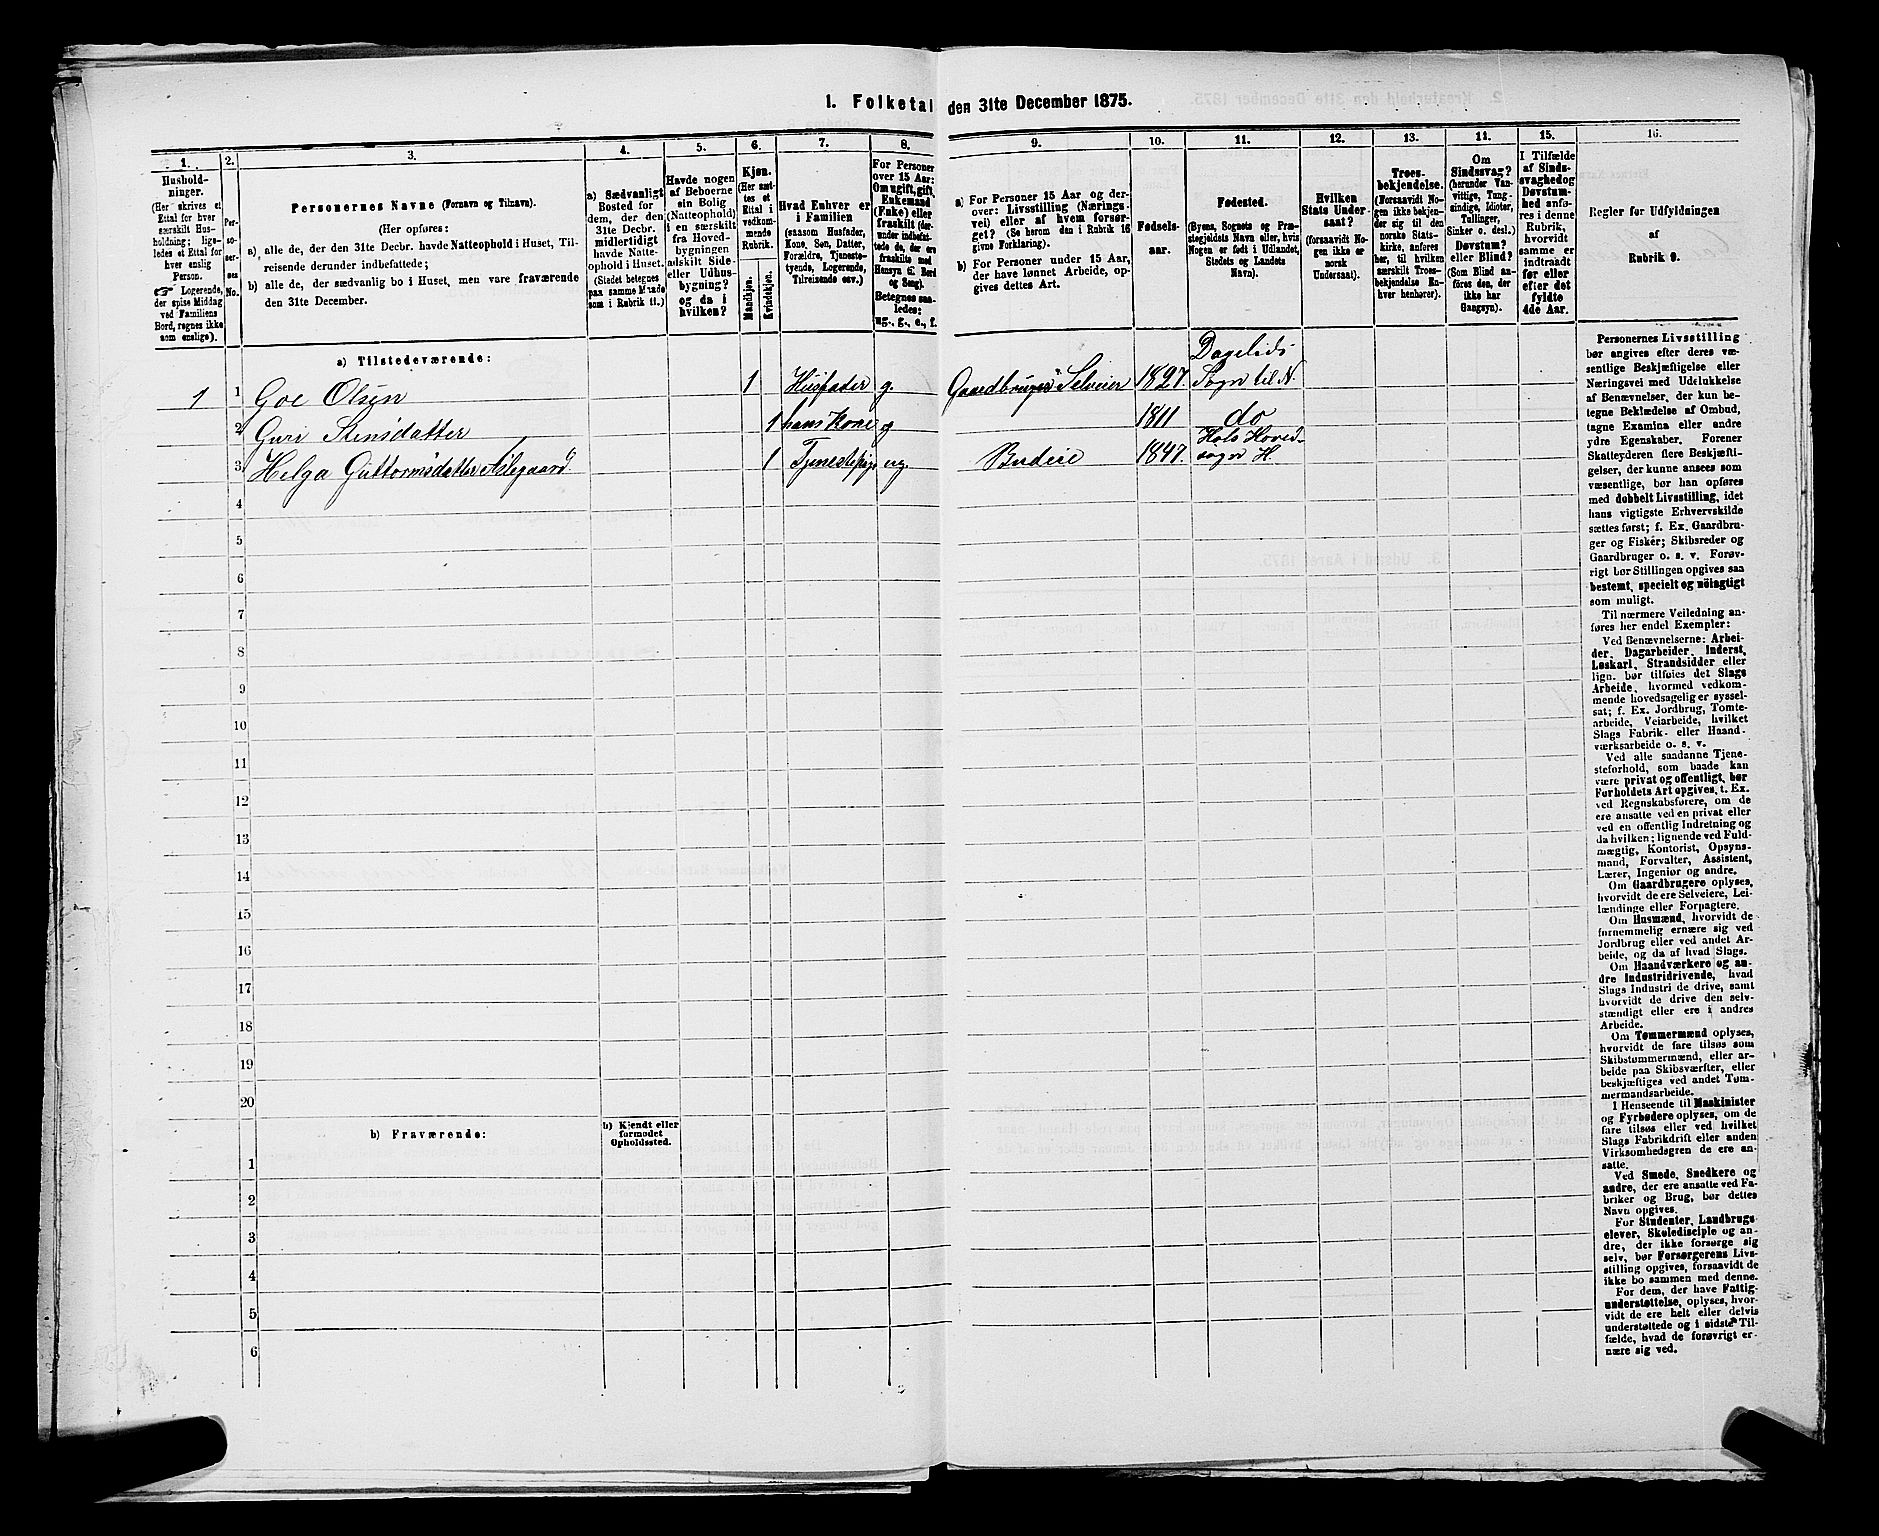 1. Folketal den 31te December 1875.
1.
2.
3.
4.
5.
6.
7.
8.
9.
10.
11.
12.
13.
14.
15.
16.
Hushold-
ninger.
(Her skrives et
Ettal for hver
særskilt Hus-
holdning; lige-
ledes et Ettal for
hver enslig
Person.
☞ Logerende,
der spise Middag
ved Familiens
Bord, regnes ikke
som enslige).
Per-
so-
ner-
nes
No.
Personernes Navne (Fornavn og Tilnavn).
(Her opføres:
a) alle de, der den 31te Decbr. havde Natteophold i Huset, Til-
reisende derunder indbefattede;
b) alle de, der sædvanlig bo i Huset, men vare fraværende
den 31te December.
a) Sædvanligt
Bosted for
dem, der den
31te Decbr.
midlertidigt
havde Natte-
ophold i Huset.
(Stedet betegnes
paa samme Maade
som i Rubrik 11.)
Havde nogen
af Beboerne
sin Bolig
(Natteophold)
i en særskilt
fra Hoved-
bygningen
adskilt Side-
eller Udhus-
bygning?
og da i
hvilken?
Kjøn.
(Her sæt-
tes et
Ettal i
vedkom-
mende
Rubrik.
Mandkjøn.
Kvindekjøn.
Hvad Enhver er
i Familien
(saasom Husfader,
Kone, Søn, Datter,
Forældre, Tjeneste-
tyende, Logerende,
Tilreisende osv.)
For Personer
over 15 Aar:
Om ugift, gift,
Enkemand
(Enke) eller
fraskilt (der-
under indbefat-
tede de, der ere
fraskilte med
Hensyn til Bord
og Seng).
Betegnes saa-
ledes:
ug., g., e., f.
a) For Personer 15 Aar og der-
over: Livsstilling (Nærings-
vei) eller af hvem forsør-
get? (Se herom den i Rubrik 16
givne Forklaring).
b) For Personer under 15 Aar,
der have lønnet Arbeide, op-
gives dettes Art.
Fødsels-
aar.
Fødested.
(Byens, Sognets og Præ-
stegjeldets Navn eller, hvis
Nogen er født i Udlandet,
Stedets og Landets
Navn).
Hvilken
Stats Under-
saat?
(forsaavidt No-
gen ikke er
norsk
Undersaat).
Troes-
bekjendelse.
(Forsaavidt No-
gen ikke bekjen-
der sig til den
norske Stats-
kirke, anføres
her, til hvilken
særskilt Troes-
bekjendelse En-
hver henhører).
Om
Sindssvag?
(herunder Van-
vittige, Tung-
sindige, Idioter,
Tullinger,
Sinker o. desl.)
Døvstum?
eller Blind?
(Som Blind an-
føres den, der
ikke har
Gangsyn).
I Tilfælde
af Sinds-
svaghed og
Døvstum-
hed anfø-
res i denne
Rubrik,
hvorvidt
samme er
indtraadt
før eller
efter det
fyldte
4de Aar.
Regler for Udfyldningen
af
Rubrik 9.
a) Tilstedeværende:
1 1 Goe Olsen 1 Husfader g. Gaardbruger Selveier 1827. Dagelids Sogn til N.
2 Guri Stensdatter 1 hans Kone g 1811 do
3 Helga Guttormsdatter Aslegaard 1 Tjenestepige ug. Budeie 1847. Hols Hoved-
sogn H.
4
5
6
7
8
9
10
11
12
13
14
15
16
17
18
19
20
b) Fraværende:
b) Kjendt eller
formodet
Opholdssted.
1
2
3
4
5
6
Personernes Livsstilling
bør angives efter deres væ-
sentlige Beskjæftigelse eller
Næringsvei med Udelukkelse
af Benævnelser, der kun be-
tegne Beklædelse af Ombud,
tagne Examina eller andre
ydre Egenskaber. Forener
Skatteyderen flere Beskjæfti-
gelser, der kunne ansees som
væsentlige, bør han opføres
med dobbelt Livsstilling, idet
hans vigtigste Erhvervskilde
sættes først; f. Ex. Gaardbru-
ger og Fisker; Skibsreder og
Gaardbruger o. s. v. Forøv-
rigt bør Stillingen opgives saa
bestemt, specielt og nöiagtigt
som muligt.
Til nærmere Veiledning an-
føres her endel Exempler:
Ved Benævnelserne: Arbei-
der, Dagarbeider, Inderst,
Løskarl, Strandsidder eller
lign. bør tilføies det Slags
Arbeide, hvormed vedkom-
mende hovedsagelig er syssel-
sat; f. Ex. Jordbrug, Tomte-
arbeide, Veiarbeide, hvilket
Slags Fabrik- eller Haand-
værksarbeide o. s. v.
Ved alle saadanne Tjene-
steforhold, som baade kan
være privat og offentligt, bør
Forholdets Art opgives, t. Ex.
ved Regnskabsførere, om de
ere ansatte ved en privat eller
ved en offentlig Indretning og
da hvilken; lignende ved Fuld-
mægtig, Kontorist, Opsyns-
mand, Forvalter, Assistent,
Lærer, Ingeniør og andre.
Om Gaardbrugere oplyses,
hvorvidt de ere Selveiere, Lei-
lændinge eller Forpagtere.
Om Husmænd, hvorvidt de
fornemmelig ernære sig ved
Jordbrug eller ved andet Ar-
beide, og da af hvad Slags.
Om Haandværkere og an-
dre Industridrivende, hvad
Slags Industri de drive, samt
hvorvidt de drive den selv-
stændigt eller ere i andres
Arbeide.
Om Tømmermænd oplyses,
hvorvidt de fare tilsøs som
Skibstømmermænd, eller ar-
beide paa Skibsværfter, eller
beskjæftiges ved andet Tøm-
mermandsarbeide.
I Henseende til Maskinister
og Fyrbødere oplyses, om de
fare tilsøs eller ved hvilket
Slags Fabrikdrift eller anden
Virksomhedsgren de ere an-
satte.
Ved Smede, Snedkere og
andre, der ere ansatte ved Fa-
briker og Brug, bør dettes
Navn opgives.
For Studenter, Landbrugs-
elever, Skoledisciple og an-
dre, der ikke forsørge sig
selv, bør Forsørgerens Livs-
stilling opgives, forsaavidt de
ikke bo sammen med denne.
For dem, der have Fattig-
understøttelse, oplyses, hvor-
vidt de ere helt eller delvis
understøttede og i sidste Til-
fælde, hvad de forøvrigt er-
nære sig ved.